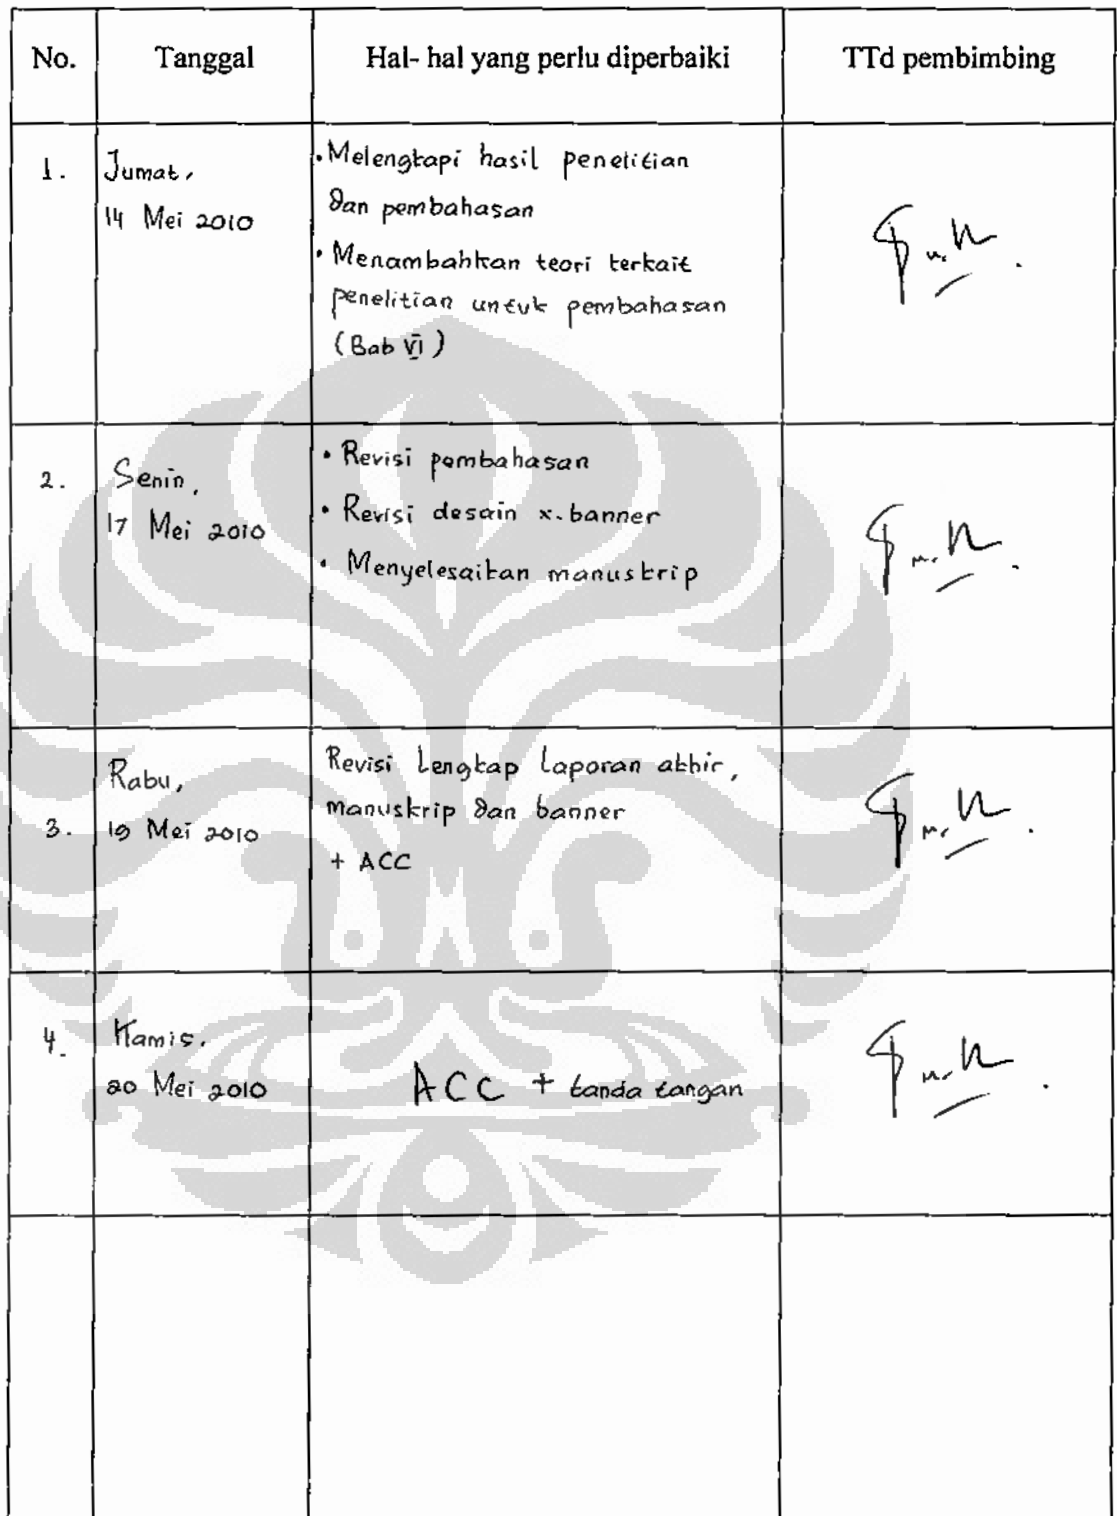 No. Tanggal Hal- hal yang perlu diperbaiki TTd pembimbing
1. Jumat,
14 Mei 2010
• Melengkapi hasil penelitian
dan pembahasan
• Menambahkan teori terkait
penelitian untuk pembahasan
(Bab VI)
2. Senin,
17 Mei 2010
• Revisi pembahasan
• Revisi desain x-banner
• Menyelesaikan manuskrip
3. Rabu,
19 Mei 2010
Revisi Lengkap Laporan akhir,
manuskrip dan banner
+ ACC
4. Kamis,
20 Mei 2010
ACC + tanda tangan